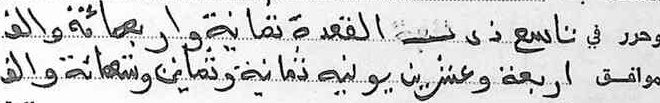 وحرر في تاسع ذي القعدة ثمانية واربعمائة والف
موافق اربعة وعشرين يونيه ثمانية وثمانين وتسعمائة والف